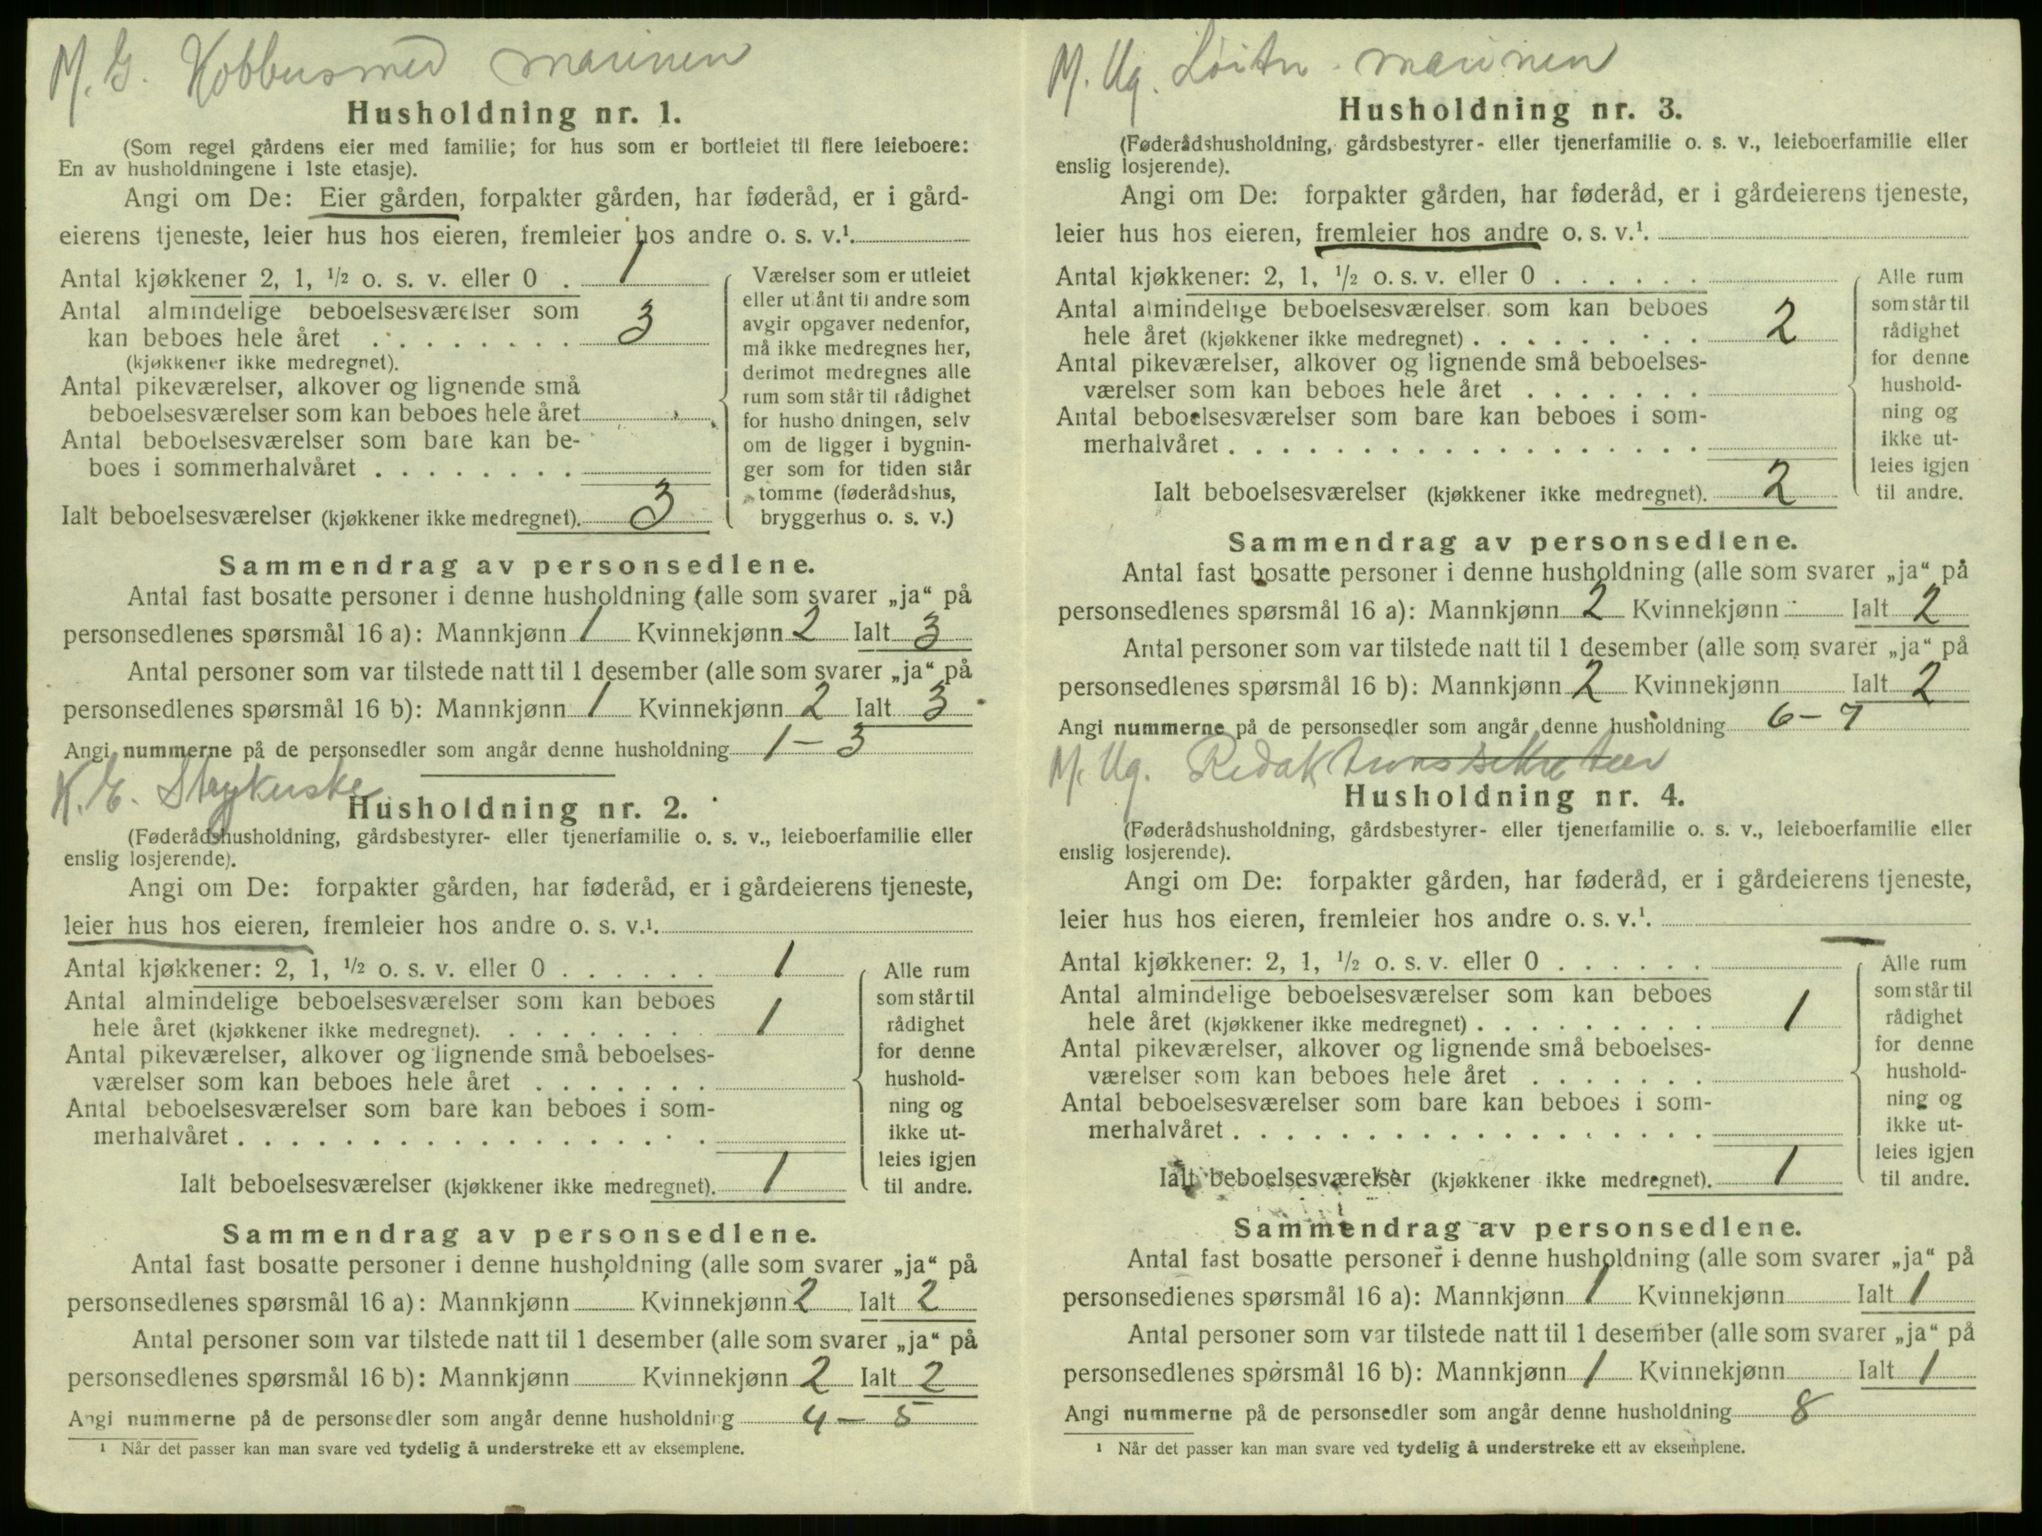 M. G. Kobbersmed marinen
Husholdning nr. 1.
(Som regel gårdens eier med familie; for hus som er bortleiet til flere leieboere:
En av husholdningene i 1ste etasje).
Angi om De: Eier gården, forpakter gården, har føderåd, er i gård-
eierens tjeneste, leier hus hos eieren, fremleier hos andre o. s. v.¹.
Antal kjøkkener 2, 1, ½ o. s. v. eller 0 . 1
Antal almindelige beboelsesværelser som
kan beboes hele året . . . . . . . . 3
(kjøkkener ikke medregnet).
Antal pikeværelser, alkover og lignende små
beboelsesværelser som kan beboes hele året
Antal beboelsesværelser som bare kan be-
boes i sommerhalvåret . . . . . . .
Ialt beboelsesværelser (kjøkkener ikke medregnet). 3
Værelser som er utleiet
eller utlånt til andre som
avgir opgaver nedenfor,
må ikke medregnes her,
derimot medregnes alle
rum som står til rådighet
for husholdningen, selv
om de ligger i bygnin-
ger som for tiden står
tomme (føderådshus,
bryggerhus o. s. v.)
Sammendrag av personsedlene.
Antal fast bosatte personer i denne husholdning (alle som svarer „ja“ på
personsedlenes spørsmål 16 a): Mannkjønn 1 Kvinnekjønn 2 Ialt 3
Antal personer som var tilstede natt til 1 desember (alle som svarer „ja“ på
personsedlenes spørsmål 16 b): Mannkjønn 1 Kvinnekjønn 2 Ialt 3
Angi nummerne på de personsedler som angår denne husholdning 1 – 3
K. E. Strykerske
Husholdning nr. 2.
(Føderådshusholdning, gårdsbestyrer- eller tjenerfamilie o. s. v., leieboerfamilie eller
enslig losjerende).
Angi om De: forpakter gården, har føderåd, er i gårdeierens tjeneste,
leier hus hos eieren, fremleier hos andre o. s. v.¹.
Antal kjøkkener: 2, 1, ½ o. s. v. eller 0 . . . . . . 1
Antal almindelige beboelsesværelser som kan beboes
hele året (kjøkkener ikke medregnet). . . . . . . . . 1
Antal pikeværelser, alkover og lignende små beboelses-
værelser som kan beboes hele året . . . . . . .
Antal beboelsesværelser som bare kan beboes i som-
merhalvåret . . . . . . . . . . . . . . . . . .
Ialt beboelsesværelser (kjøkkener ikke medregnet). 1
Alle rum
som står til
rådighet
for denne
hushold-
ning og
ikke ut-
leies igjen
til andre.
Sammendrag av personsedlene.
Antal fast bosatte personer i denne husholdning (alle som svarer „ja“ på
personsedlenes spørsmål 16 a): Mannkjønn Kvinnekjønn 2 Ialt 2
Antal personer som var tilstede natt til 1 desember (alle som svarer „ja“ på
personsedlenes spørsmål 16 b): Mannkjønn Kvinnekjønn 2 Ialt 2
Angi nummerne på de personsedler som angår denne husholdning 4 – 5
¹ Når det passer kan man svare ved tydelig å understreke ett av eksemplene.
M. Ug. Löitn. marinen
Husholdning nr. 3.
(Føderådshusholdning, gårdsbestyrer- eller tjenerfamilie o. s. v., leieboerfamilie eller
enslig losjerende).
Angi om De: forpakter gården, har føderåd, er i gårdeierens tjeneste,
leier hus hos eieren, fremleier hos andre o. s. v.¹.
Antal kjøkkener: 2, 1, ½ o. s. v. eller 0 . . . . . .
Antal almindelige beboelsesværelser som kan beboes
hele året (kjøkkener ikke medregnet) . . . . . . . . . 2
Antal pikeværelser, alkover og lignende små beboelses-
værelser som kan beboes hele året . . . . . . .
Antal beboelsesværelser som bare kan beboes i som-
merhalvåret . . . . . . . . . . . . . . . . . .
Ialt beboelsesværelser (kjøkkener ikke medregnet). 2
Alle rum
som står til
rådighet
for denne
hushold-
ning og
ikke ut-
leies igjen
til andre.
Sammendrag av personsedlene.
Antal fast bosatte personer i denne husholdning (alle som svarer „ja“ på
personsedlenes spørsmål 16 a): Mannkjønn 2 Kvinnekjønn Ialt 2
Antal personer som var tilstede natt til 1 desember (alle som svarer „ja“ på
personsedlenes spørsmål 16 b): Mannkjønn 2 Kvinnekjønn Ialt 2
Angi nummerne på de personsedler som angår denne husholdning 6 – 7
M. Ug. Redaktionssekretær
Husholdning nr. 4.
(Føderådshusholdning, gårdsbestyrer- eller tjenerfamilie o. s. v., leieboerfamilie eller
enslig losjerende).
Angi om De: forpakter gården, har føderåd, er i gårdeierens tjeneste,
leier hus hos eieren, fremleier hos andre o. s. v.¹.
Antal kjøkkener: 2, 1, ½ o. s. v. eller 0 . . . . . . —
Antal almindelige beboelsesværelser som kan beboes
hele året (kjøkkener ikke medregnet) . . . . . . . . . 1
Antal pikeværelser, alkover og lignende små beboelses-
værelser som kan beboes hele året . . . . . . .
Antal beboelsesværelser som bare kan beboes i som-
merhalvåret . . . . . . . . . . . . . . . . . .
Ialt beboelsesværelser (kjøkkener ikke medregnet). 1
Alle rum
som står til
rådighet
for denne
hushold-
ning og
ikke ut-
leies igjen
til andre.
Sammendrag av personsedlene.
Antal fast bosatte personer i denne husholdning (alle som svarer „ja“ på
personsedlenes spørsmål 16 a): Mannkjønn 1 Kvinnekjønn Ialt 1
Antal personer som var tilstede natt til 1 desember (alle som svarer „ja“ på
personsedlenes spørsmål 16 b): Mannkjønn 1 Kvinnekjønn Ialt 1
Angi nummerne på de personsedler som angår denne husholdning 8
¹ Når det passer kan man svare ved tydelig å understreke ett av eksemplene.